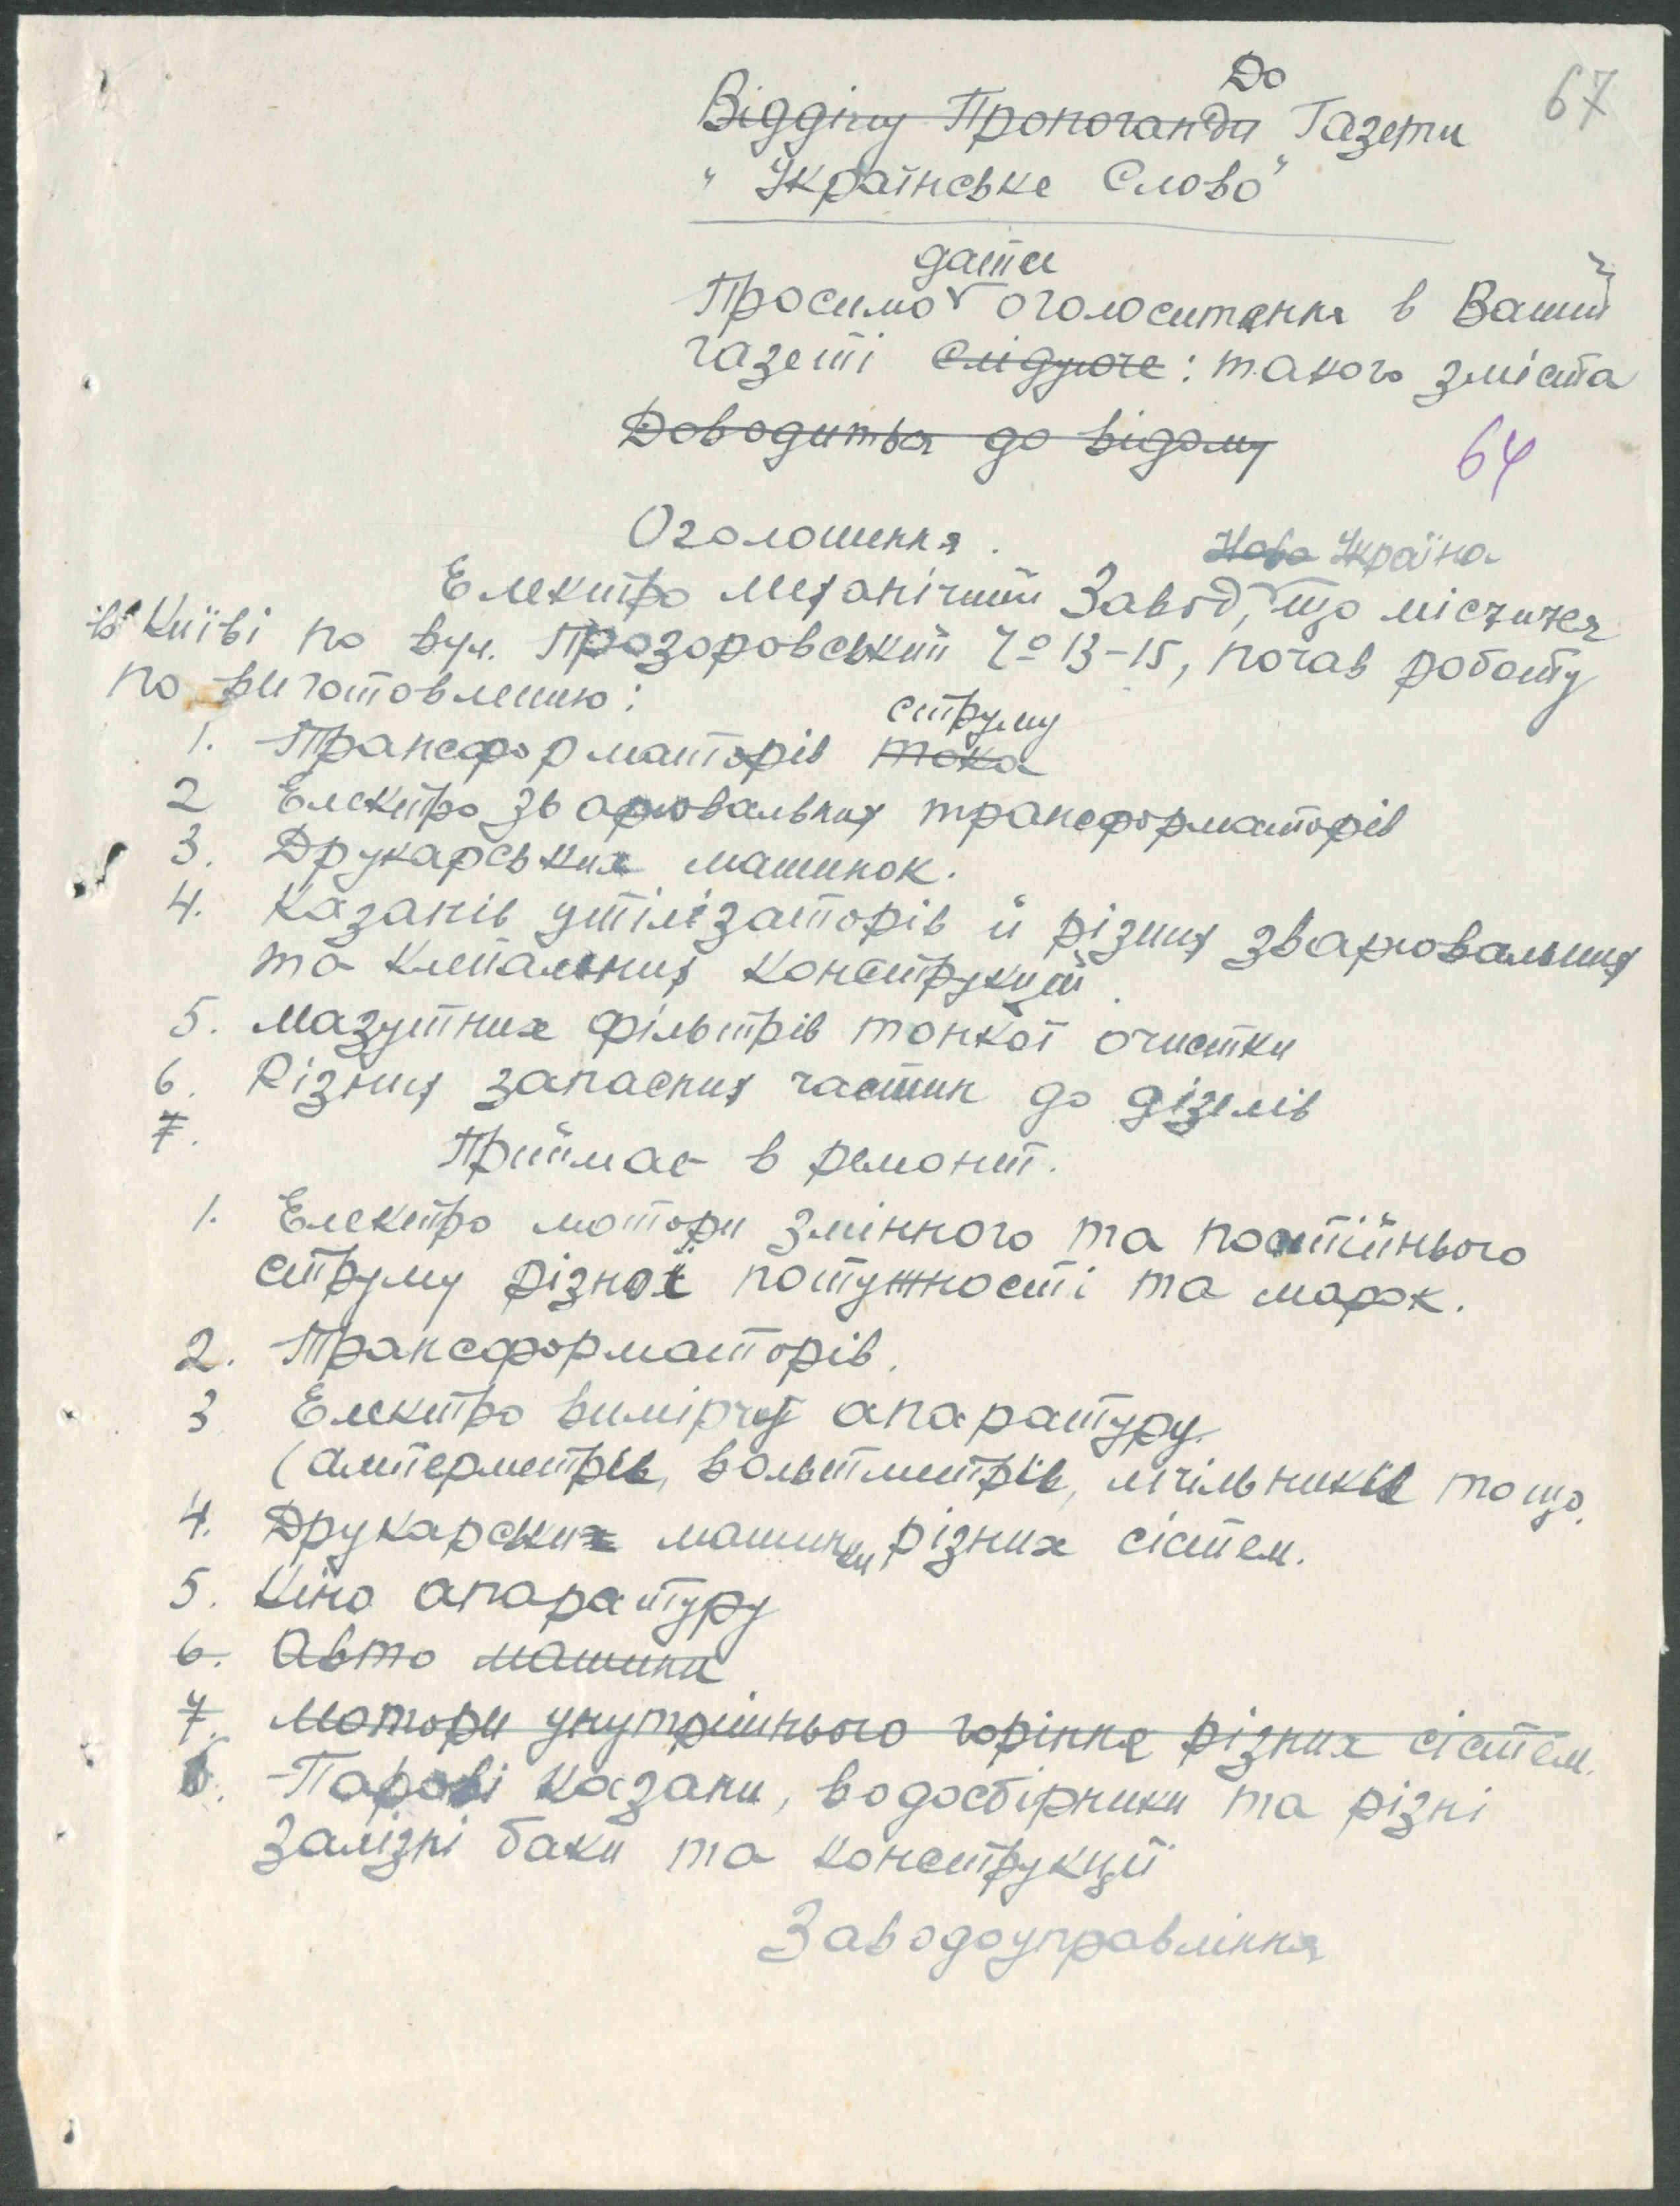 67
До
Відділу Пропоганди Газети
"Українське Слово"
дати
Просимо оголоситення в Ваший
газеті слідуюче: такого зміста
Доводиться до відому
64
Оголошення.
Нова Україна
Електро механічний Завод, що міститься
в Київі по вул. Прозоровський № 13-15, почав роботу
по виготовленню:
струму
1. Трансформаторів тока
2 Електро зварювальних трансформаторів
3. Друкарських машинок.
4. Казанів утілізаторів й різних зварювальних
та клепальних конструкцій.
5. Мазутних фільтрів тонкої очистки
6. Різних запасних частин до дізелів
7.
Приймає в ремонт.
1. Електро мотори змінного та постійнього
струму різної потужності та марок.
2. Трансформаторів.
3 Електро вимірчу апаратуру.
(амперметрів, вольтметрів, лічільників тощо.
4. Друкарських машинки різних сістем.
5. Кіно апаратуру
6. Авто машини
7. Мотори унутрішнього горіння різних сістем.
6. Парові казани, водосбірники та різні
залізні баки та конструкції
Заводоуправління